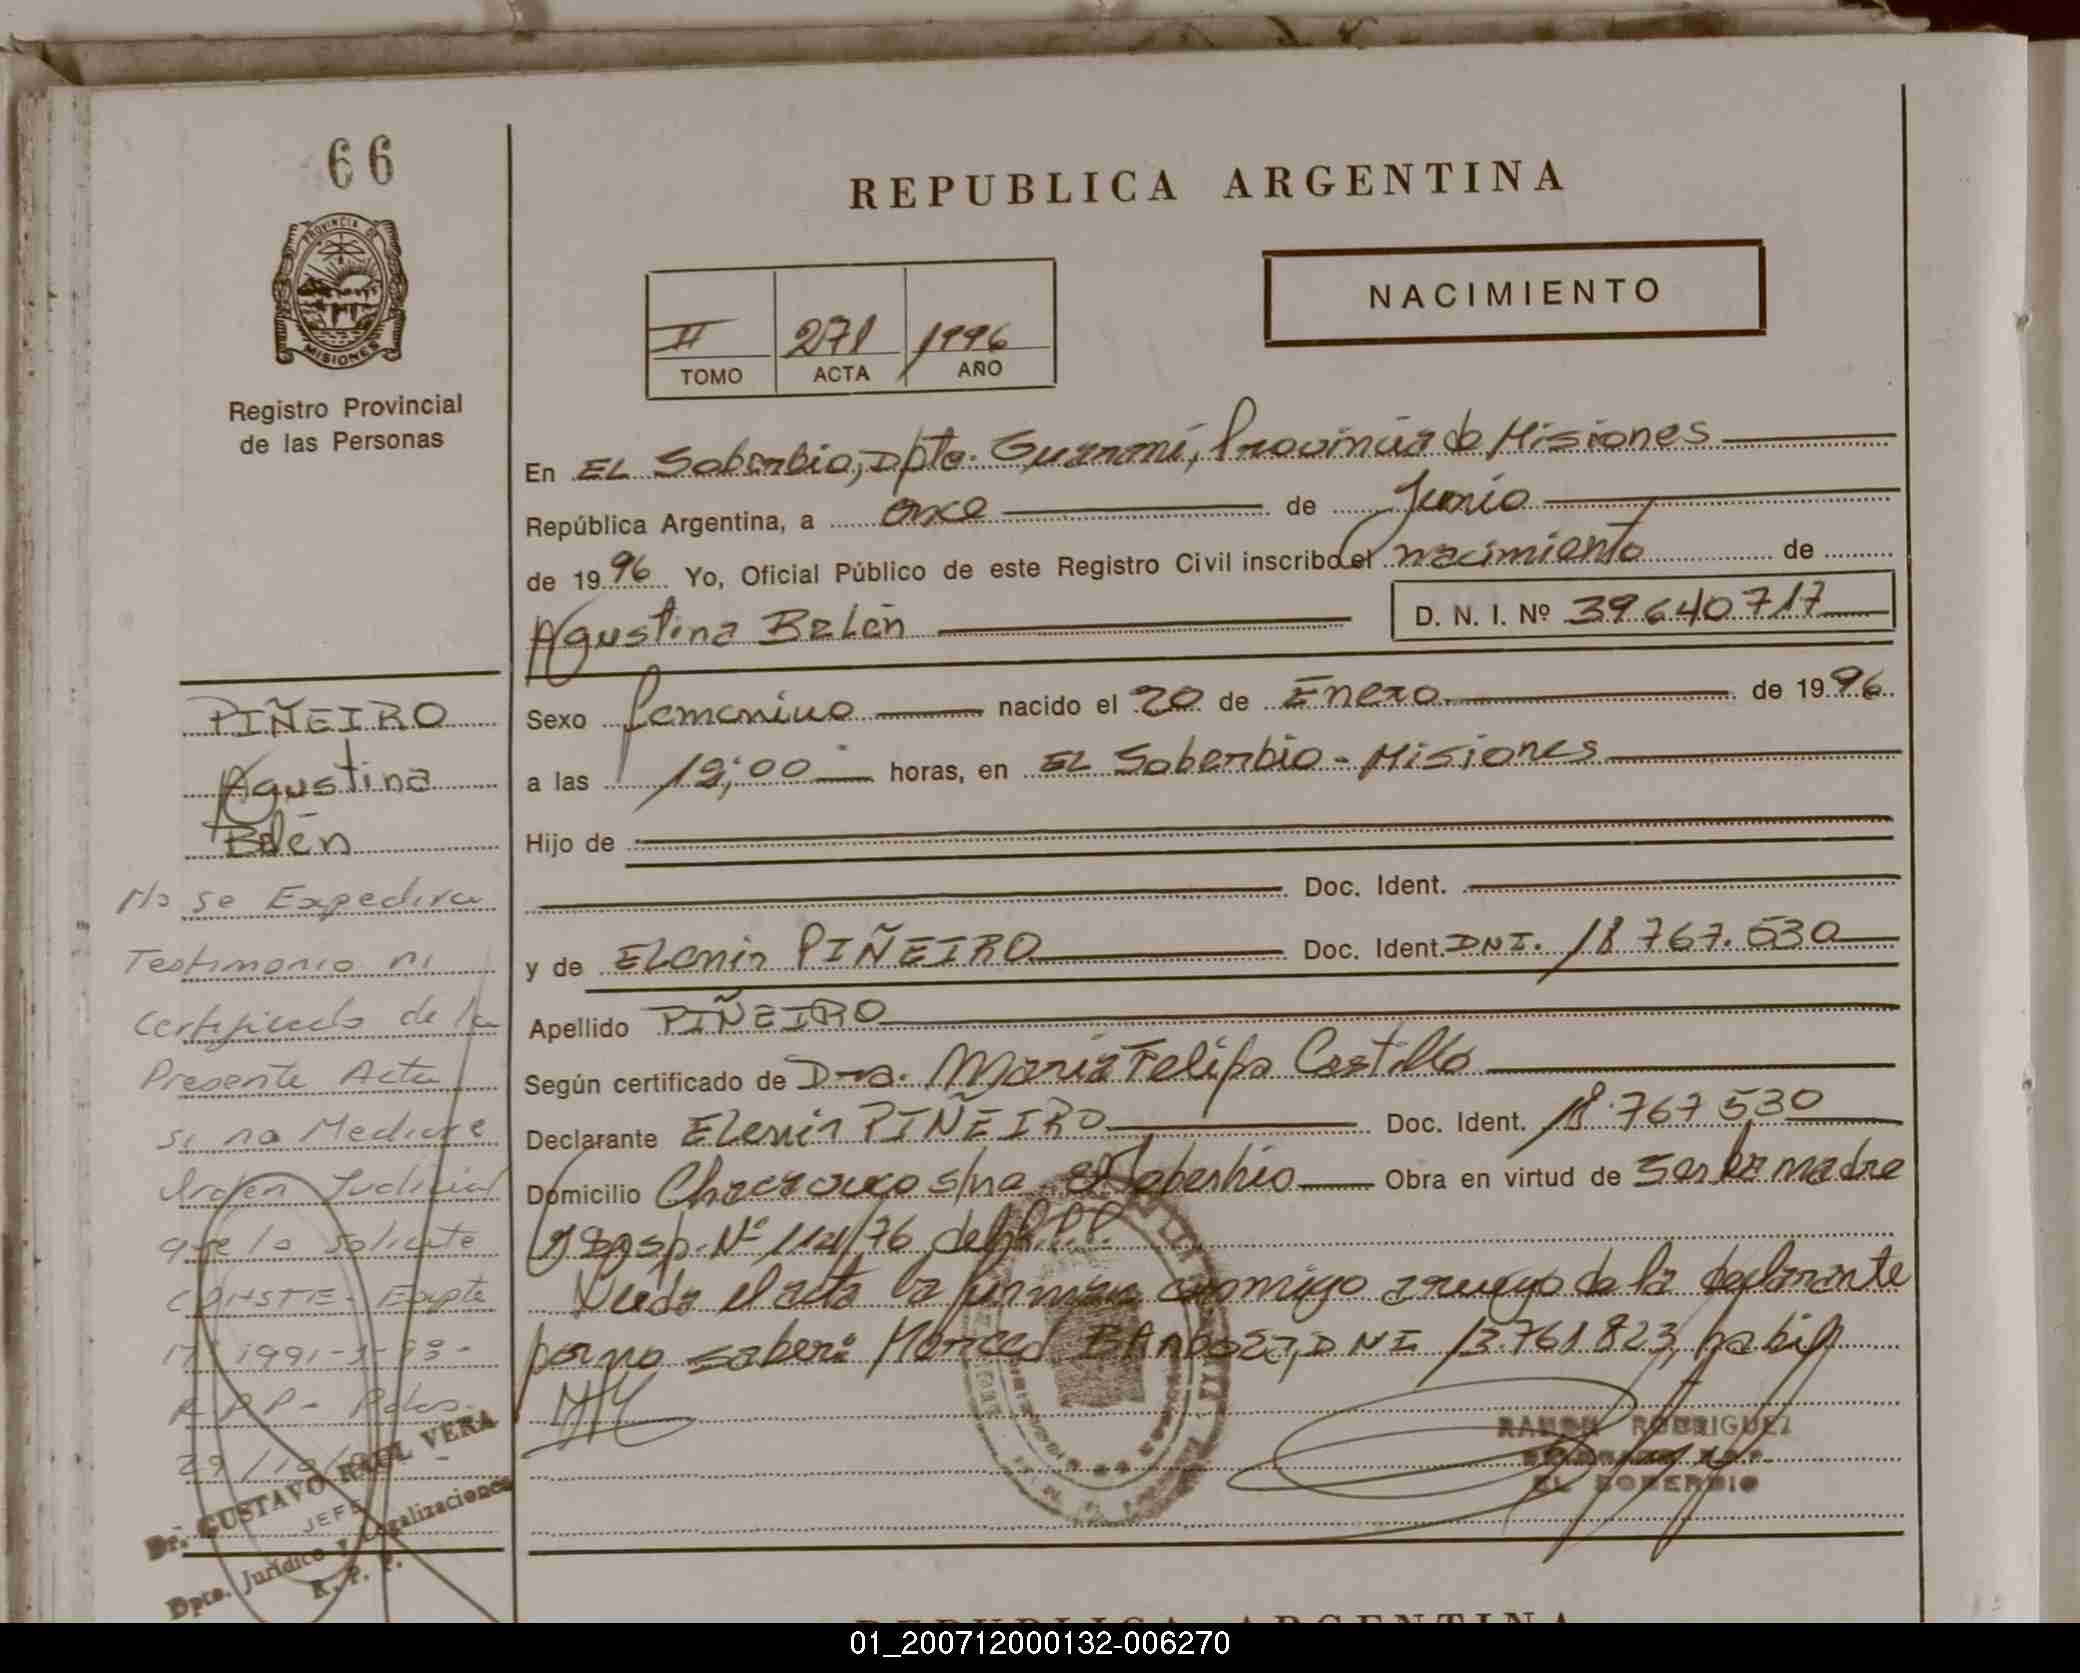 66
PROVINCIA DE
MISIONES
Registro Provincial
de las Personas
REPUBLICA ARGENTINA
NACIMIENTO
II 271 1996
TOMO ACTA AÑO
En EL Soberbio, Dpto. Guaraní, Provincia de Misiones
República Argentina, a once de Junio
de 1996 Yo, Oficial Público de este Registro Civil inscribo el nacimiento de
Agustina Belén D. N. I. Nº 39.640.717
Sexo femenino nacido el 20 de Enero de 1996
a las horas, en EL Soberbio - Misiones
Hijo de
Doc. Ident.
y de Elenir PIÑEIRO Doc. Ident. DNI. 18.767.530
Apellido PIÑEIRO
Según certificado de Dra. María Felipa Castillo
Declarante Elenir PIÑEIRO Doc. Ident. 18.767.530
Domicilio s/nro. El Soberbio Obra en virtud de ser la madre
y Nº /76 del R.P.P.
Leída el acta la firma conmigo a ruego de la declarante
por no saber: DNI 13.761.823, habil
RAMON RODRIGUEZ
EL SOBERBIO
PIÑEIRO
Agustina
Belén
No se Expedira
Testimonio ni
Certificado de la
Presente Acta
si no Mediare
Orden Judicial
que lo solicite
CONSTE - Expte
1991-
R.P.P. - Pdas.
29/10/
Dr. GUSTAVO RAUL VERA
JEFE
Dpto. Jurídico y Legalizaciones
R. P. P.
REPUBLICA ARGENTINA
01_200712000132-006270